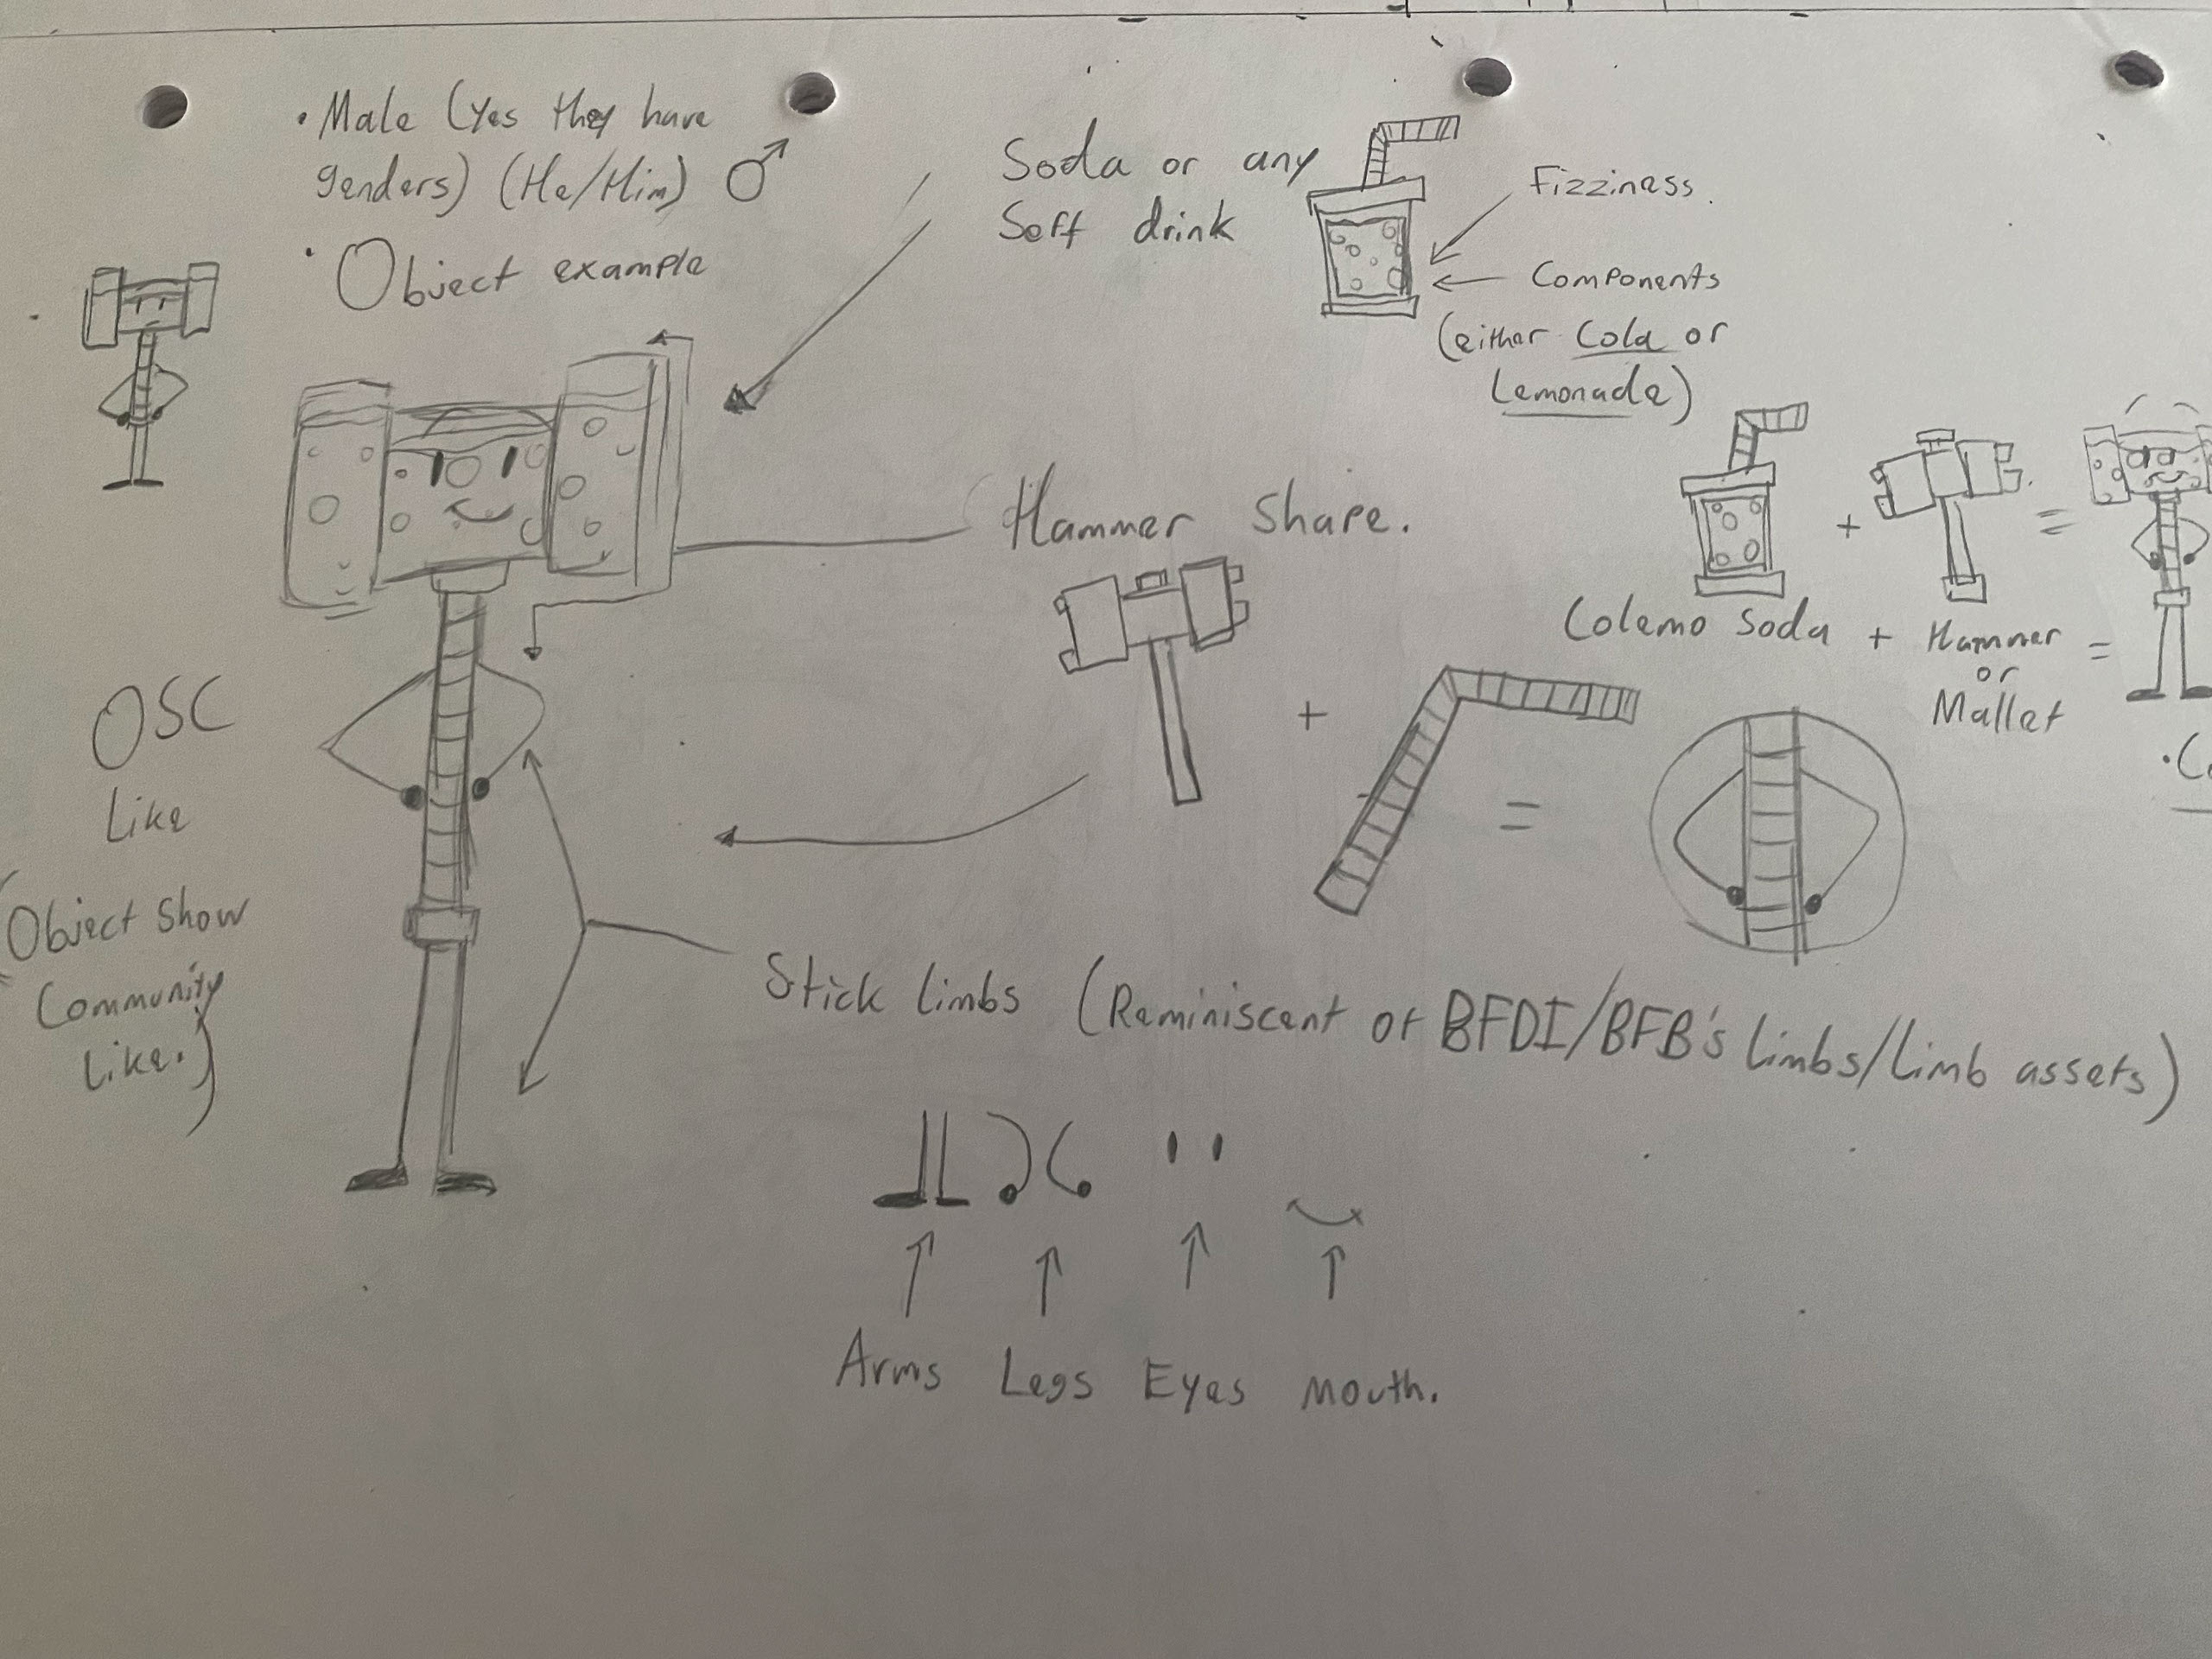 • Male (Yes they have
genders) (He/Him) ♂
• Object example
Soda or any
Soft drink
Fizziness.
Components
(either Cola or
Lemonade)
Hammer Shape.
+
=
+
=
Colemo Soda + Hammer
or
Mallet
=
OSC
Like
(Object Show
Community
Like.)
Stick limbs (Reminiscent of BFDI/BFB's limbs/limb assets)
Arms Legs Eyes mouth.